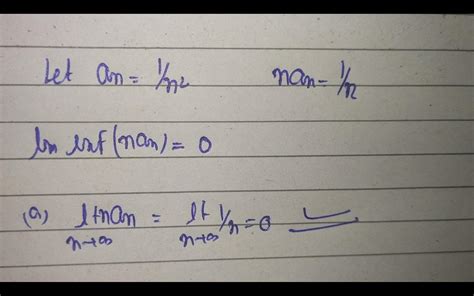 Let an = 1/n² nan = 1/n
lim inf (nan) = 0
(a) lt nan = lt 1/n = 0
n→∞ n→∞